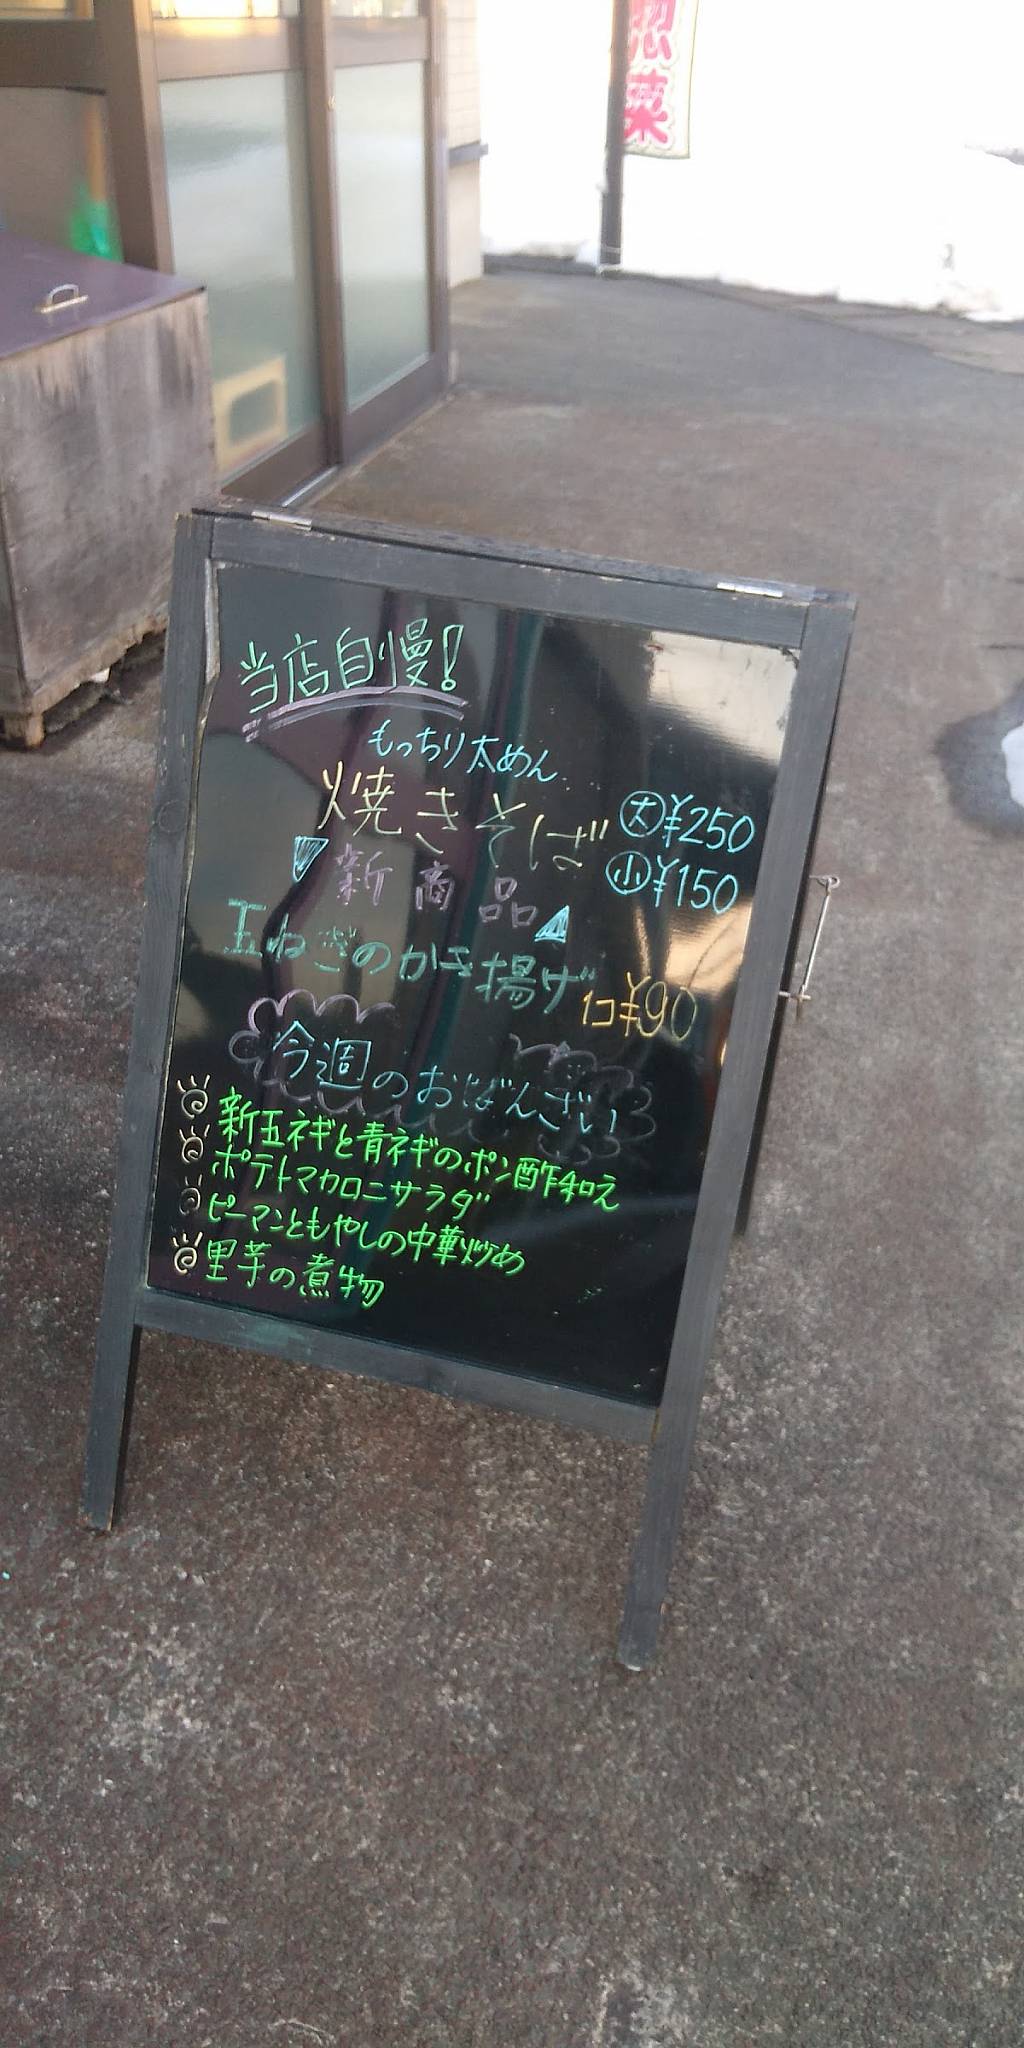 惣菜
当店自慢!
もっちり太めん
焼きそば
大¥250
小¥150
新商品
玉ねぎのかき揚げ
1コ¥90
今週のおばんざい
新玉ネギと青ネギのポン酢和え
ポテトマカロニサラダ
ピーマンともやしの中華炒め
里芋の煮物